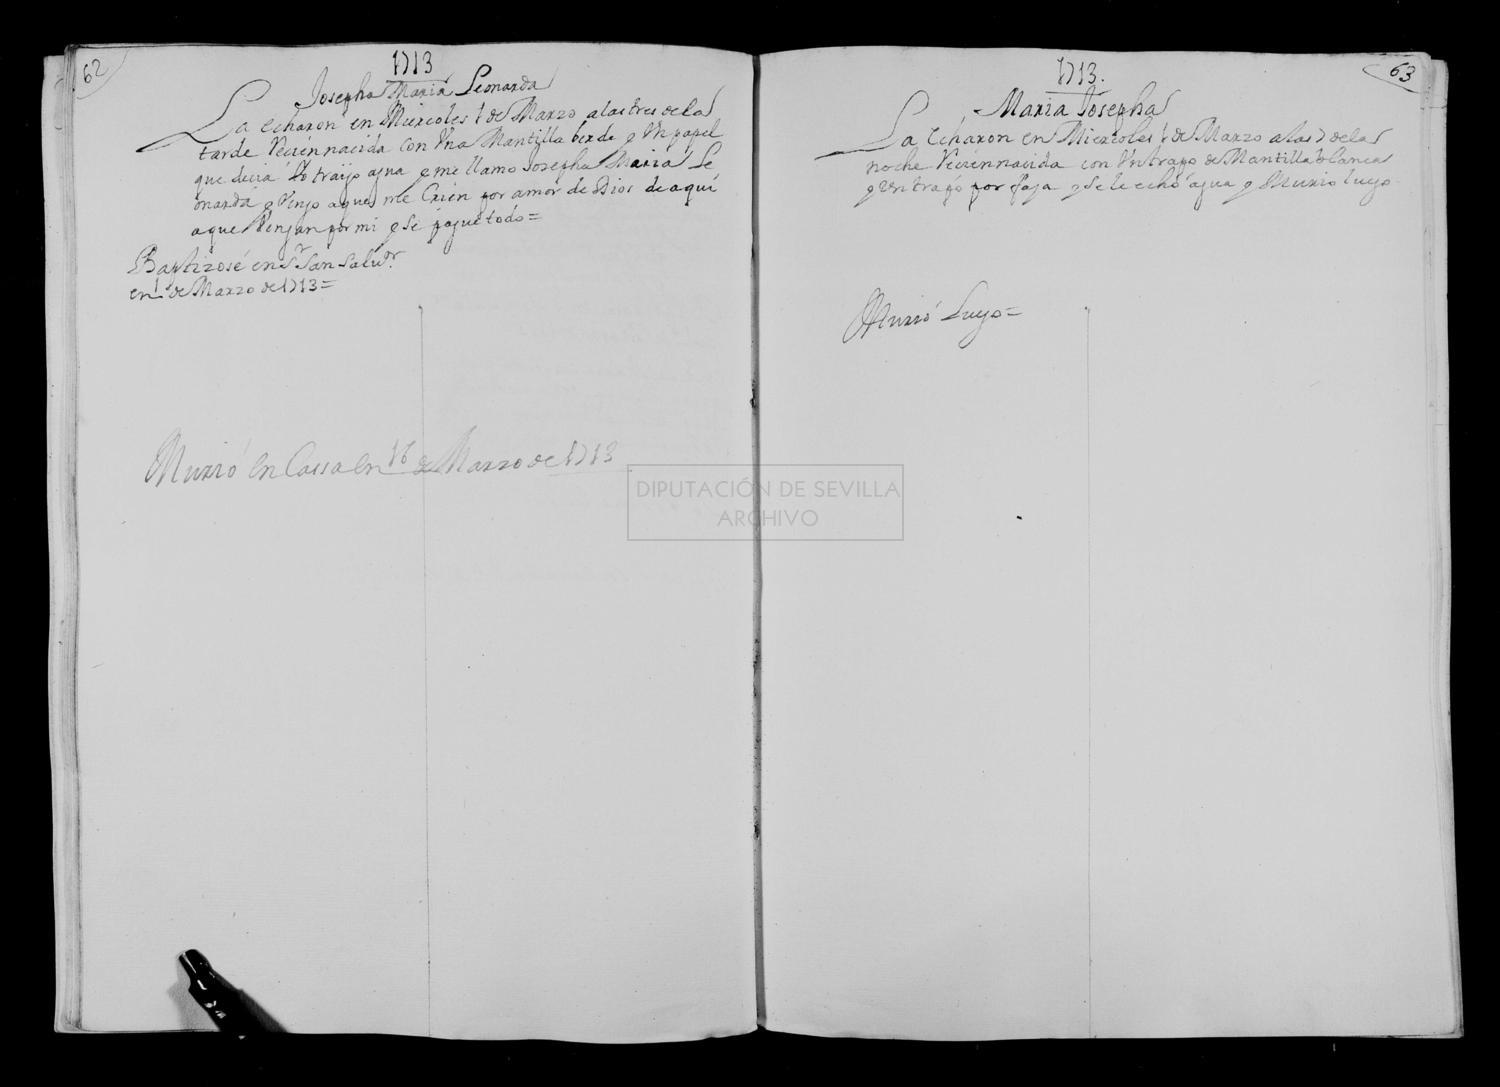 62
1713
Josepha Maria Leonarda
La echaron en Miercoles 1 de Marzo a las tres de la
tarde Recien nacida con Una Mantilla berde y Un papel
que decia Yo traijo agua y me llamo Josepha Maria Le
onarda y Vengo a que me Crien por amor de Dios de aqui
a que Vengan por mi y se pague todo=
Baptizosé en Sr San Salvdr
en 1 de Marzo de 1713=
Murió en Cassa en 16 de Marzo de 1713
63
1713.
Maria Josepha
La Echaron en Miercoles 1 de Marzo a las 7 de la
noche Recien nacida con Un trapo de Mantilla blanca
y Un trapo por faja y se le echó agua y Murio luego
Murió Luego=
DIPUTACIÓN DE SEVILLA
ARCHIVO